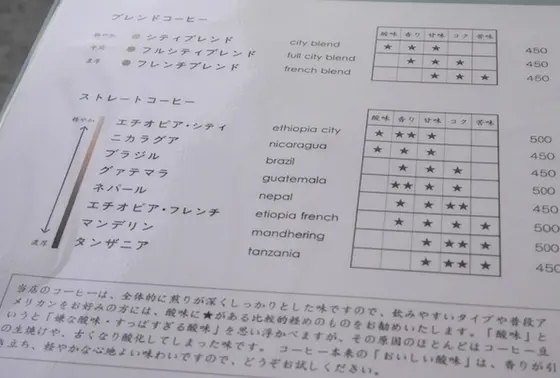 ブレンドコーヒー
酸味 香り 甘味 コク 苦味
軽やか シティブレンド city blend ★ ★ ★ 450
フルシティブレンド full city blend ★ ★ ★ 450
濃厚 フレンチブレンド french blend ★ ★ ★ 450
ストレートコーヒー
酸味 香り 甘味 コク 苦味
軽やか エチオピア・シティ ethiopia city ★ ★★ ★ 500
ニカラグア nicaragua ★ ★ ★ 450
ブラジル brazil ★ ★ ★ 450
グァテマラ guatemala ★★ ★ ★ 500
ネパール nepal ★ ★ ★★
エチオピア・フレンチ etiopia french ★ ★ ★ ★ 500
マンデリン mandhering ★ ★★ ★ 500
濃厚 タンザニア tanzania ★ ★★ ★ 450
当店のコーヒーは、全体的に煎りが深くしっかりとした味ですので、飲みやすいタイプや普段ア
メリカンをお好みの方には、酸味に★がある比較的軽めのものをお勧めいたします。「酸味」と
いうと「嫌な酸味・すっぱすぎる酸味」を思い浮かべますが、その原因のほとんどはコーヒー豆
の生焼けや、古くなり酸化してしまった味です。 コーヒー本来の「おいしい酸味」は、香りが引
き立ち、軽やかな心地よい味わいですので、どうぞお試しください。